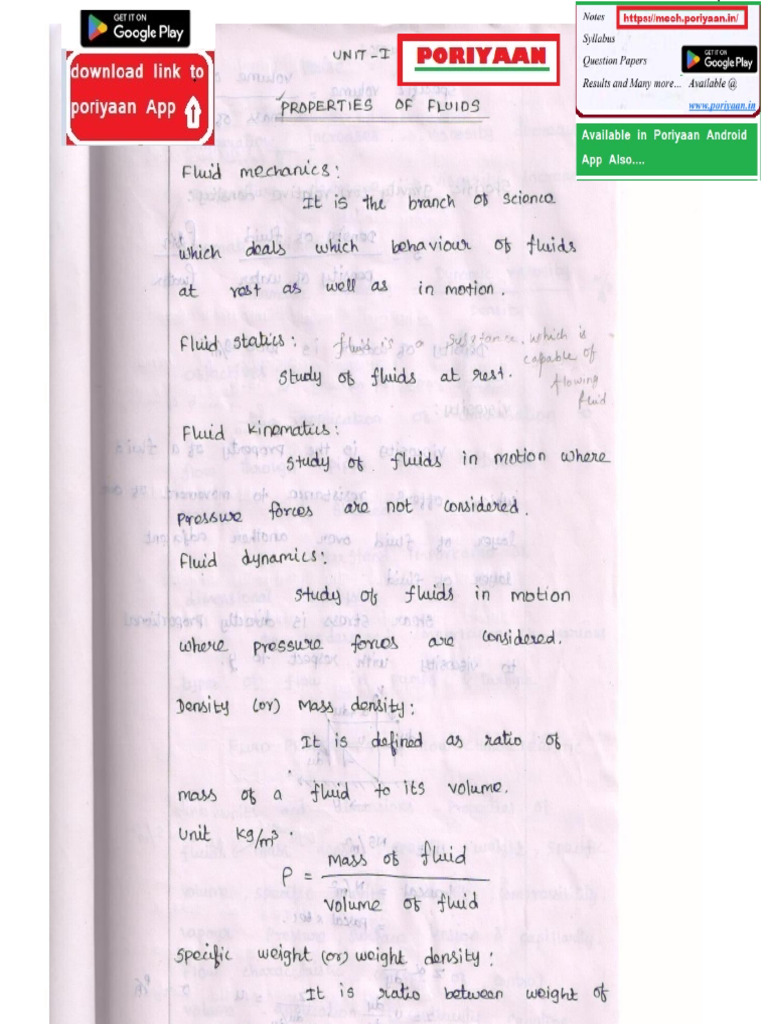 GET IT ON
Google Play
download link to
poriyaan App
UNIT-I
PORIYAAN
Notes
https://mech.poriyaan.in/
Syllabus
Question Papers
GET IT ON
Google Play
Results and Many more... Available @
www.poriyaan.in
Available in Poriyaan Android
App Also....
PROPERTIES OF FLUIDS
Fluid mechanics:
It is the branch of science
which deals which behaviour of fluids
at rest as well as in motion.
Fluid statics: fluid is a substance, which is
capable of
flowing
fluid
Study of fluids at rest.
Fluid kinematics:
Study of fluids in motion where
pressure forces are not considered.
Fluid dynamics:
Study of fluids in motion
where pressure forces are considered.
Density (or) Mass density:
It is defined as ratio of
mass of a fluid to its volume.
Unit kg/m³.
ρ = mass of fluid
volume of fluid
Specific weight (or) weight density:
It is ratio between weight of